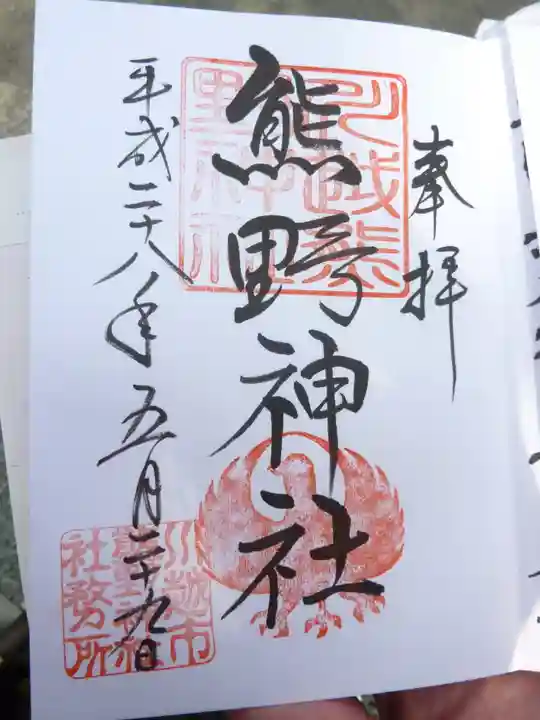 奉拝
川越熊
野神社
熊野神社
平成二十八年五月二十九日
川越市
熊野神社
社務所